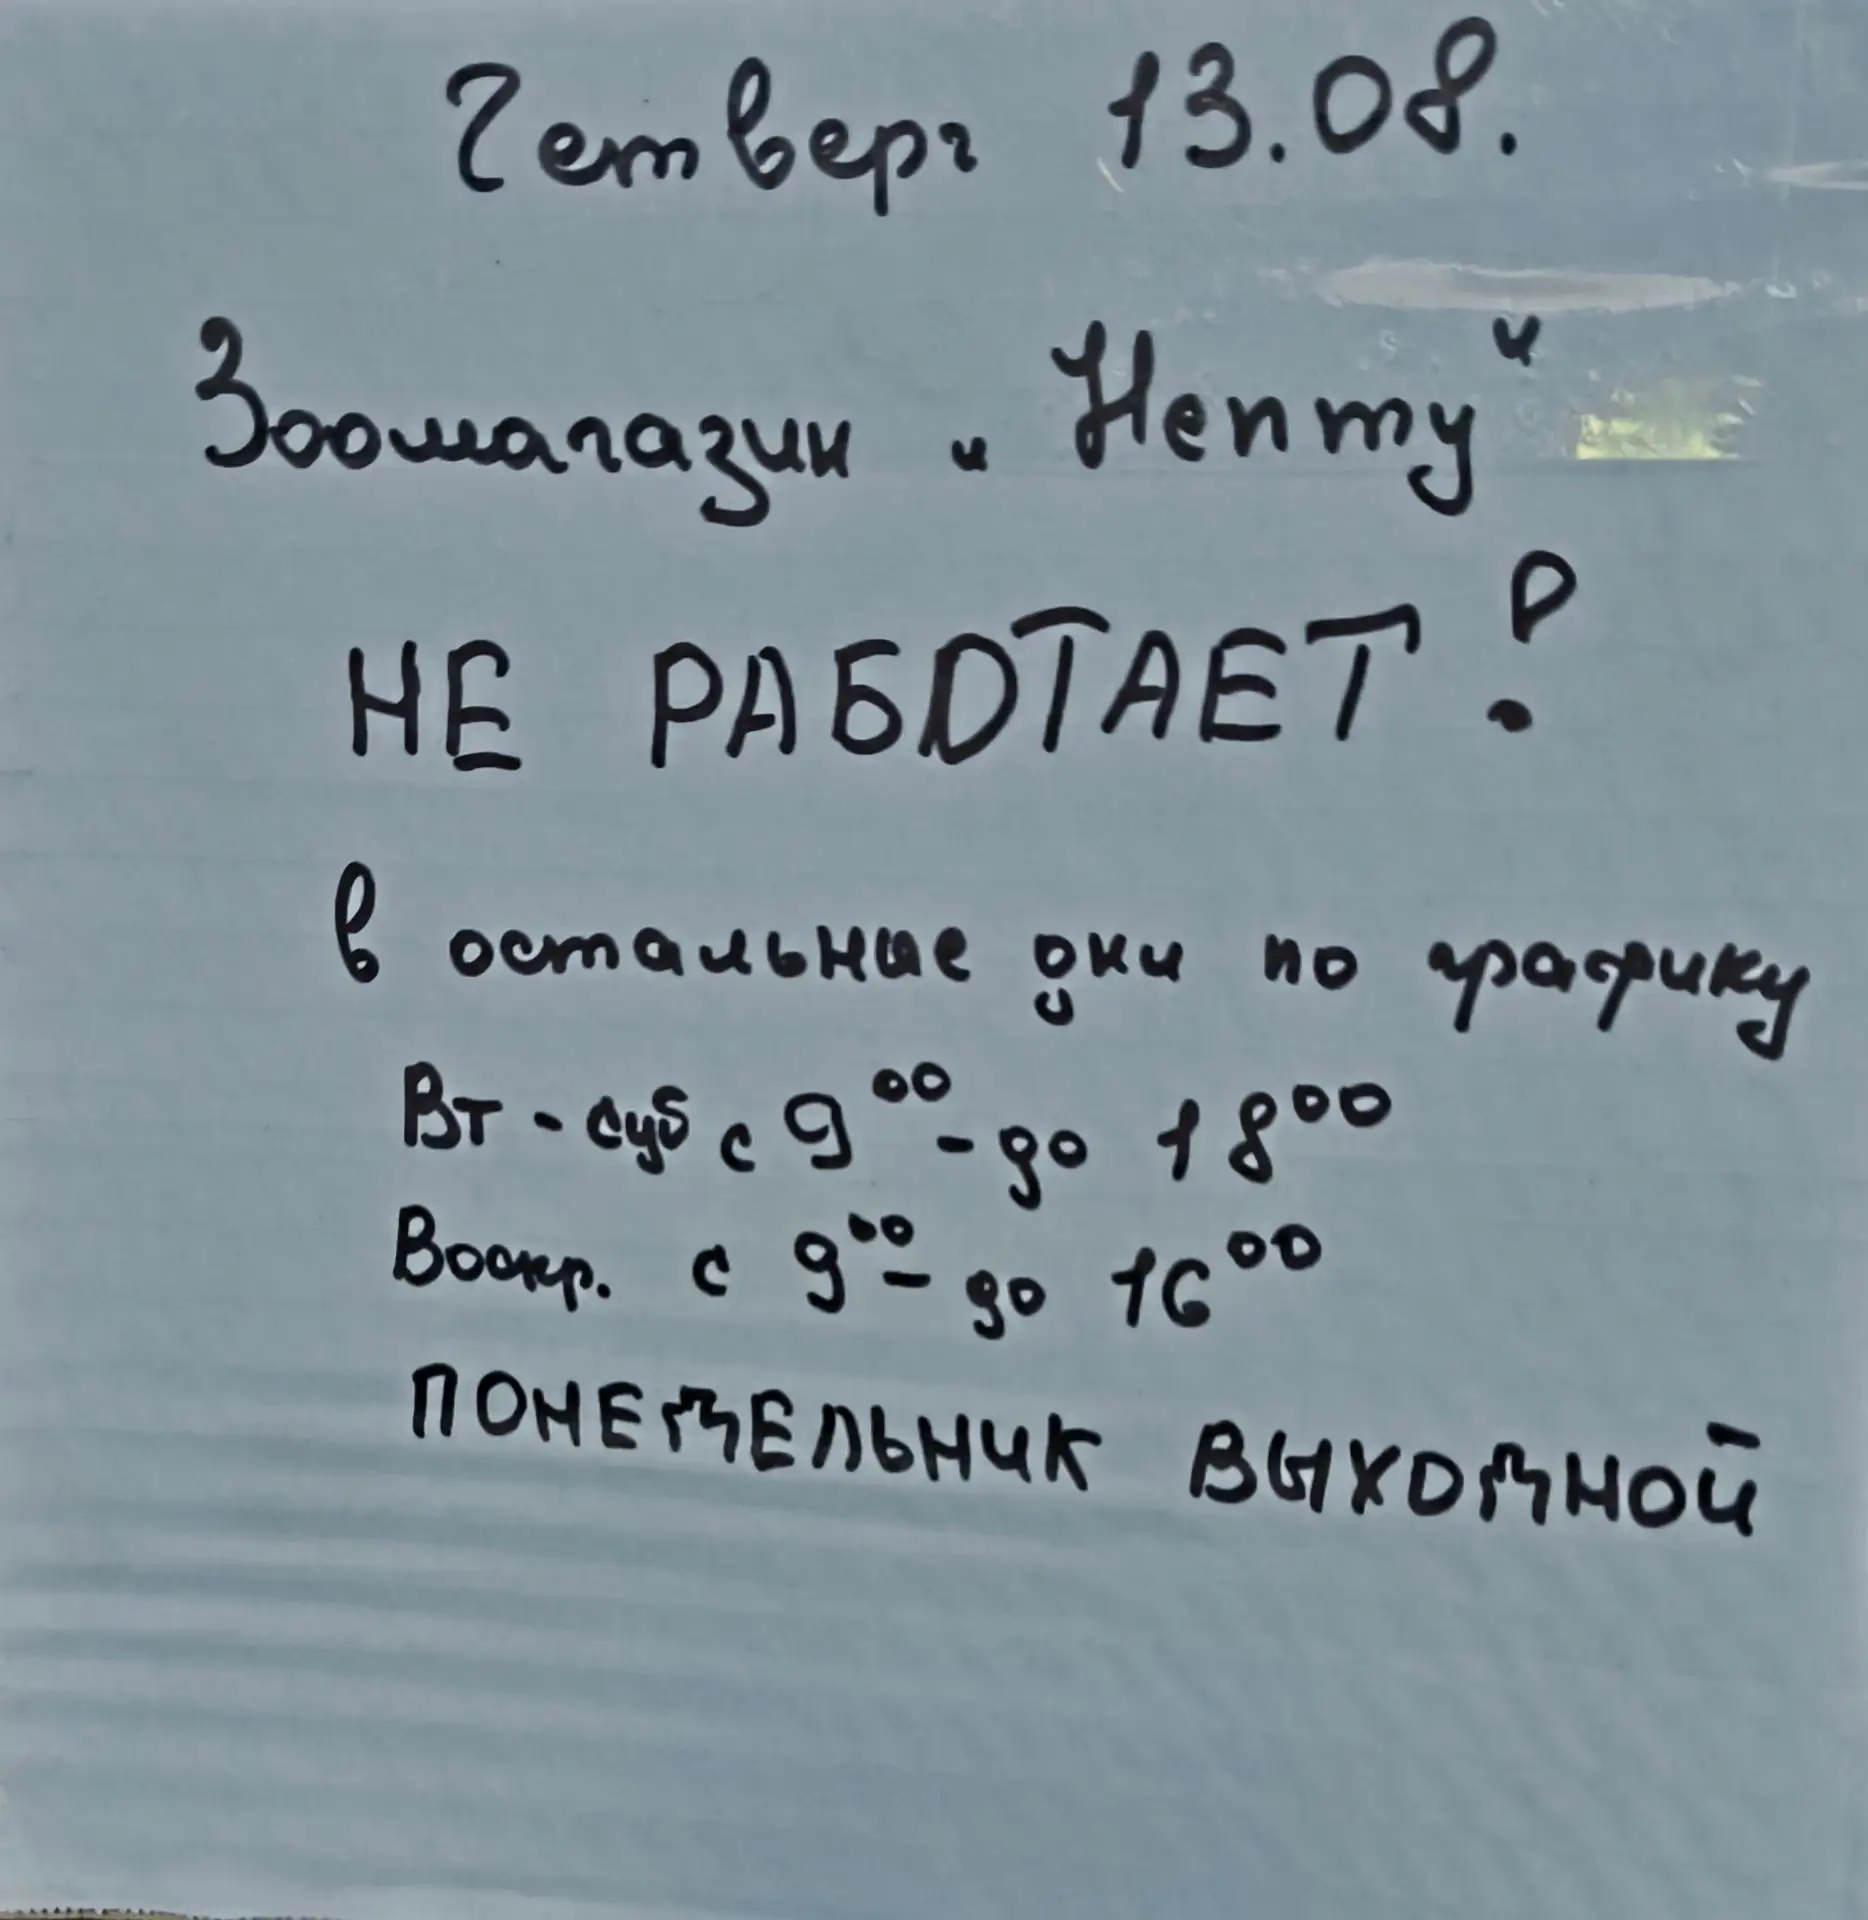 Четверг 13.08.
Зоомагазин "Непту"
НЕ РАБОТАЕТ!
в остальные дни по графику
Вт - суб с 9⁰⁰ - до 18⁰⁰
Воскр. с 9⁰⁰ - до 16⁰⁰
ПОНЕДЕЛЬНИК ВЫХОДНОЙ